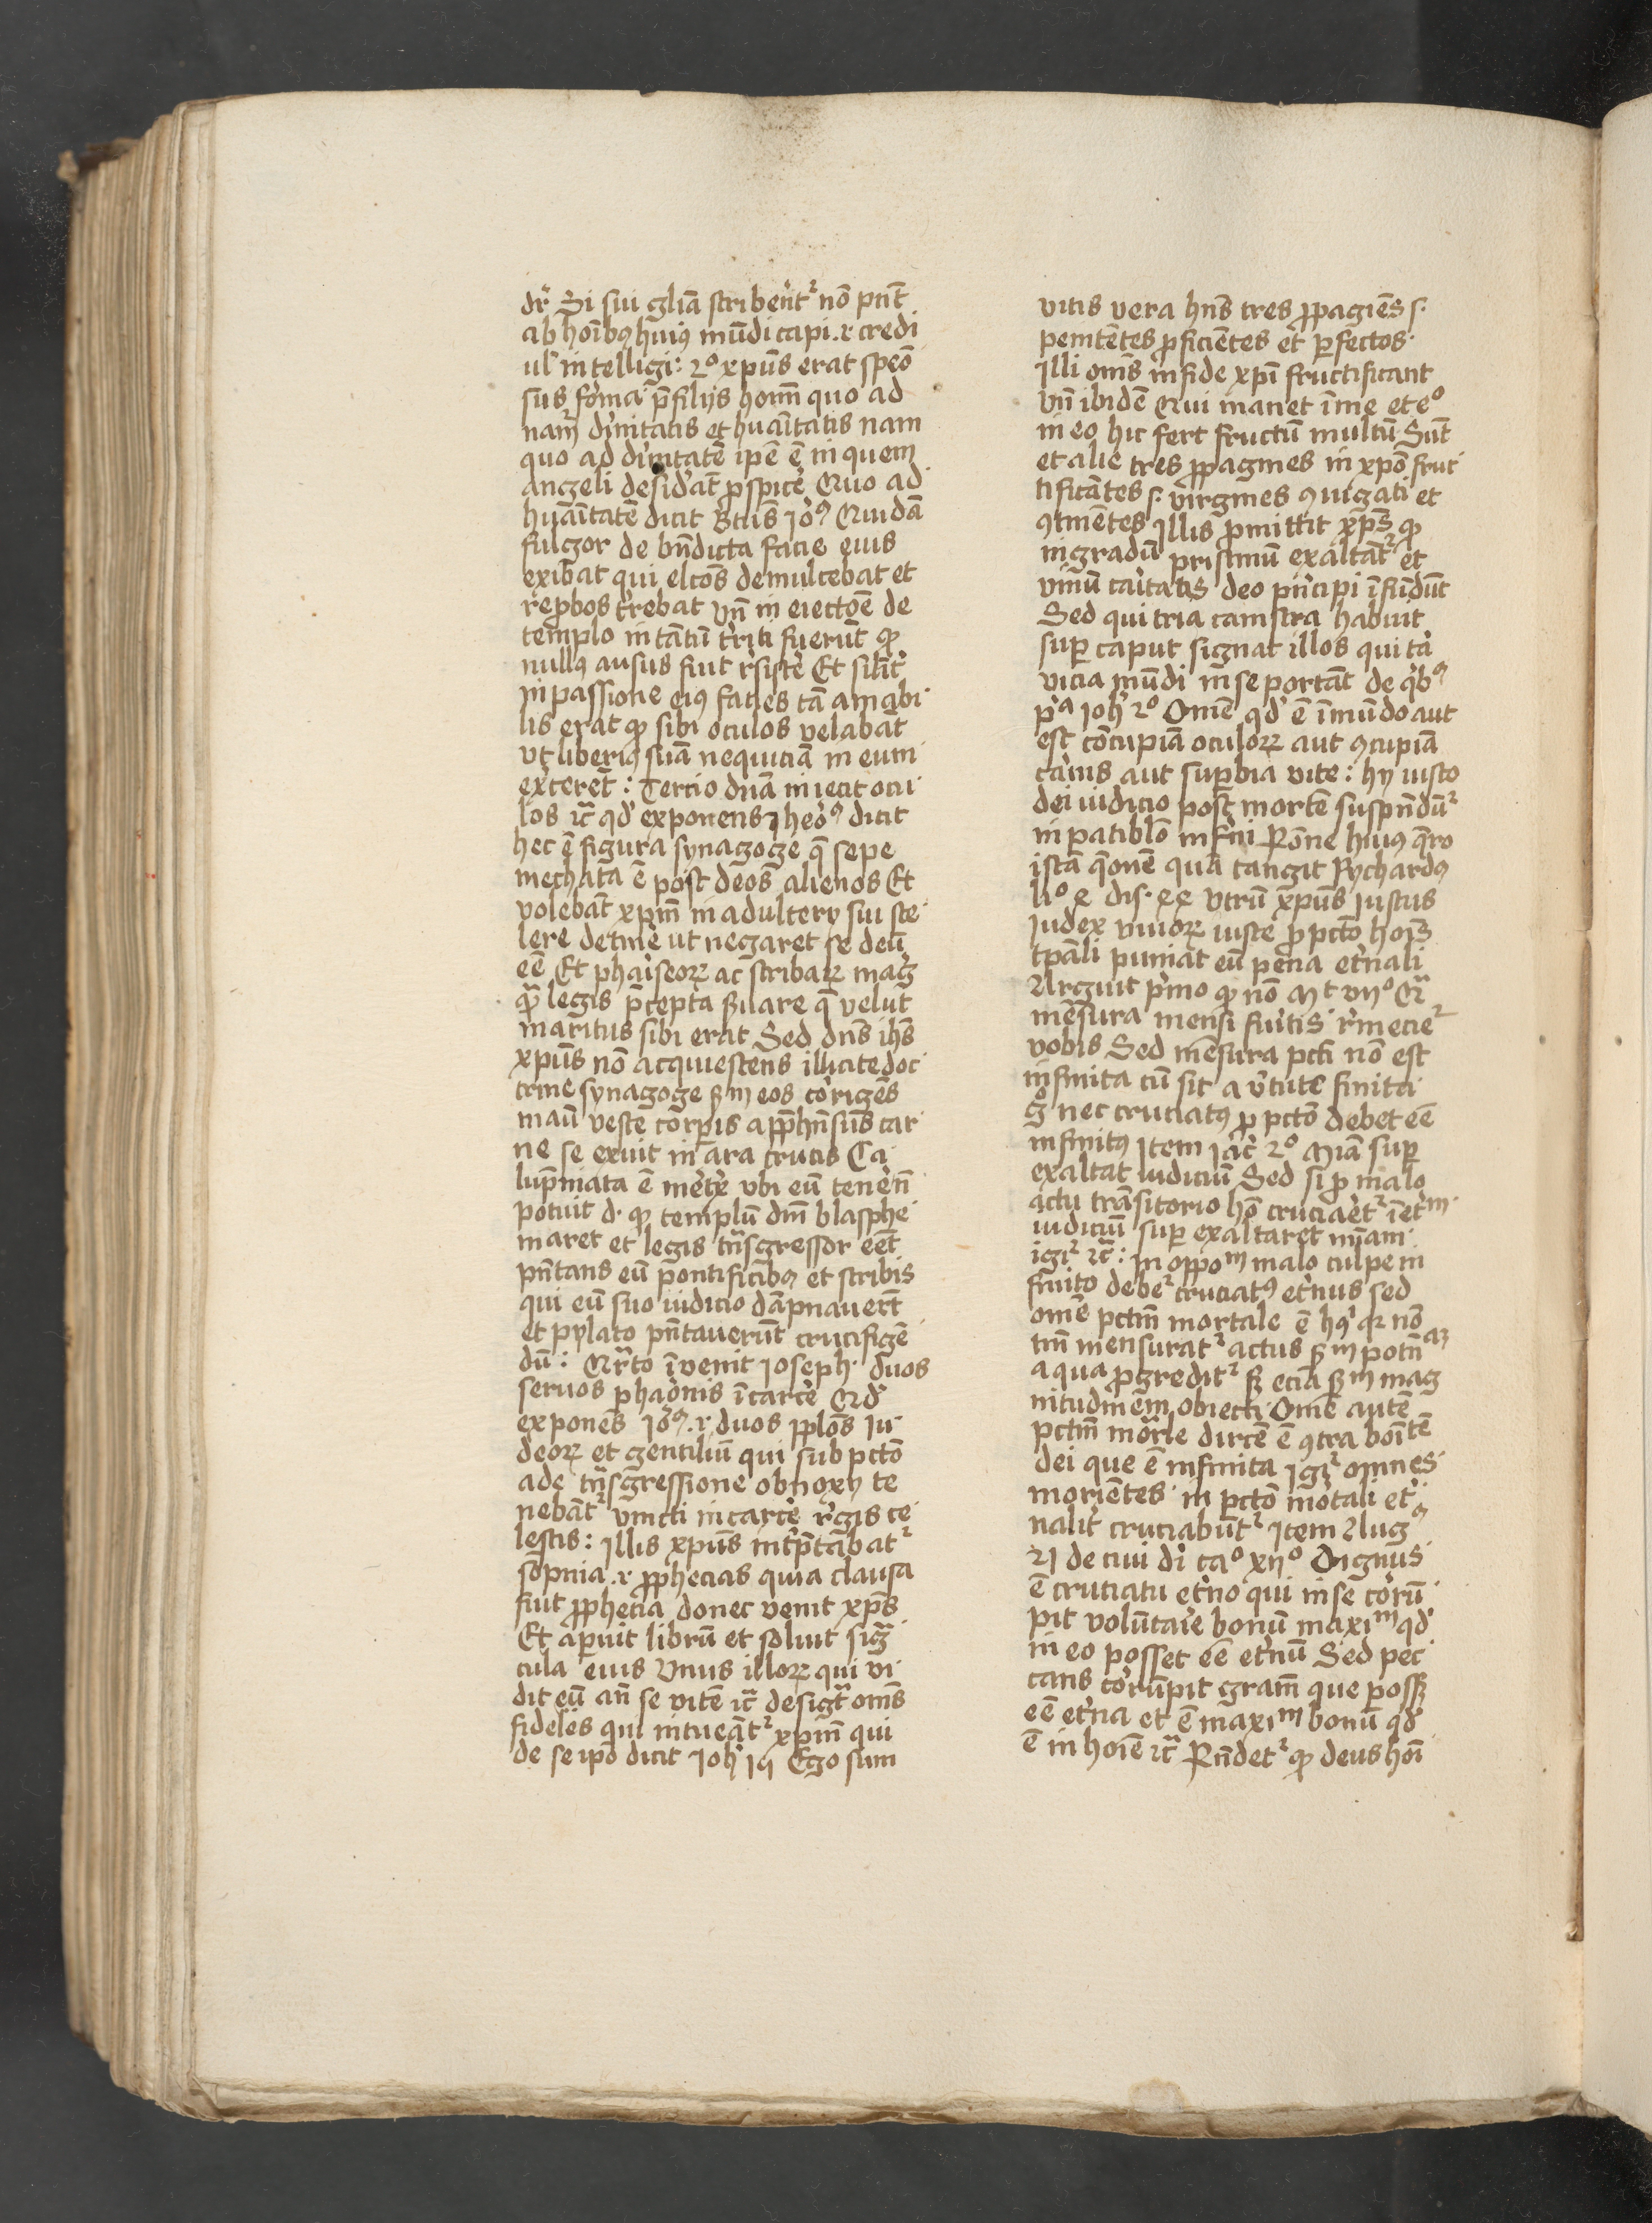 dr̄ Si sui gl̄iā scribent᷑ nō pn̄t
ab hoībꝰ huiꝰ mūdi capi .i. credi
ul' intelligi: 2º xp̄us erat speō
sus forma p̄ filijs hom̄ quo ad
nam̄ diuītatis et huāītatis nam
quo ad diuītatē ip̄e ē in quem
angeli desiderāt ꝓspice Quo ad
huāītatē dicit Btūs Joꝰ Quidā
fulgor de bn̄dicta facie eius
exibat qui elcōs demulcebat et
rep̄bos t̄rebat Vn̄ in eiectōe de
templo in tātū t̄riti fuerūt ꝙ
nullꝰ ausus fuit r̄sistē Et sil̄it̄
in passione eiꝰ facies tā amabi
lis erat ꝙ sibi oculos velabāt
vt liberiꝰ suā nequiciā in eum
ex̄cerēt: Tercio dn̄a iniecit ocu
los ⁊c̄ qd' exponens Jheoꝰ dicit
hec ē figura synagoge q̄ sepe
mechata ē post deos alienos Et
volebāt xpm̄ in adultery sui sce
lere detin̄e ut negaret se deū
eē Et phariseoꝝ ac scribaꝝ mag̅
qᷓ legis p̄cepta ßuare q̄ velut
maritus sibi erat Sed dn̄s ihs̄
xp̄us nō acquiescens illicite doc
trine synagoge ßm eos corrigēs
manū vestē corꝑis app̄hn̄sus car
ne se exuit in ara crucis Ca
lup̄niata ē mer̄t̄x ubi eū tenen̄
potuit d. ꝙ templū dm̄ blasphe
maret et legis tn̄sgressor eēt
pn̄tans eū pontificibꝰ et scribis
qui eū suo iudicio dāpnauer̄t
et pylato pn̄tauerūt crucifigē
dū: Qr̄to īuenit ioseph. duos
seruos pharōnis ī carcē Qd'
exponēs Joꝰ .i. duos pp̄los Ju
deoꝝ et gentiliū qui sub pctō
ade tn̄sgressione obnoxij te
nebāt᷑ vincti in carcē r̄gis ce
lestis: Illis xp̄us int̄p̄tabat᷑
sopnia .i. ꝓphecias quia clausa
fuit ꝓphecia donec venit xp̄s
Et aperuit librū et soluit sig̅
cula eius Vnus illoꝝ qui vi
dit eū an̄ se vitē ⁊c̄ desig̅t om̄s
fideles qui intueāt᷑ xpm̄ qui
de se ip̄o dicit Joh' iq Ego sum
vitis vera hn̄s tres ꝓpagies s.
penitētes ꝓficiētes et ꝑfectos.
Illi om̄s in fide xp̄i fructificant
Vn̄ ibidē Qui manet ī me et eº
in eo hic fert fructū multū Sūt
et alie tres ꝓpagines in xp̄o fruc
tificātes s. virgines ꝯiugati et
ꝯtinētes Illis ꝓmittit xp̄s ꝙ
in gradū pristinū exaltāt᷑ et
vinū caritatis deo pn̄cipi īfūdūt
Sed qui tria canistra habuit
suꝑ caput signat illos qui t̄a
vicia mūdi in se portāt de q̊bꝰ
p̊a Joh' 2º Om̄e qd' ē ī mūdo aut
est cōcupiā oculoꝝ aut ꝯcupiā
carnis aut suꝑbia vite: hij iusto
dei iudicio post mortē suspn̄dūt᷑
in patiblō inf̄ni Rōne huiꝰ q̄ro
istā q̄onē quā tangit Rychardꝰ
liº 4 dis. 44 Vtrū xp̄us Justus
Judex viuoꝝ iuste ꝓ pctō hoīs
tp̄ali puniat eū pena et̄nali
Arguit p̊mo ꝙ nō Mt vijº Qᷓ
mēsura mensi fueritis r̄meciet᷑
vobis Sed mēsura pcti nō est
infinita cū sit a v̄tute finita
g̊ nec cruciatꝰ ꝓ pctō debet eē
infinitꝰ Item Jac̄ 2º Mīam suꝑ
exaltat iudiciū Sed si ꝓ malo
actu trāsitorio hō cruciaret᷑ ī et̄m
iudiciū suꝑ exaltaret mīam
igit᷑ ⁊c̄: In oppom malo culpe in
finito debet᷑ cruciatꝰ et̄nus sed
om̄e pctm̄ mortale ē hꝰ qr nō
tm̄ mensurat᷑ actus ßm potn̄az
a qua ꝓgredit᷑ sꝫ etiā ßm mag
nitudinem obiecti Om̄e autē
pctm̄ mor̄le dir̄cē ē ꝯtra boītē
dei que ē infinita Igit᷑ omnes
moriētes in pctō mortali et̄
nalit̄ cruciabūt᷑ Item Augꝰ
21 de ciui di caº xijº Dignus
ē cruciatu et̄no qui in se corrū
pit volūtarie bonū maximū qd'
in eo posset eē et̄nū Sed pec
cans corrūpit gram̄ que possꝫ
eē et̄na et ē maximū bonū qd'
ē in hoīe ⁊c̄ Rn̄det᷑ ꝙ deus hoī